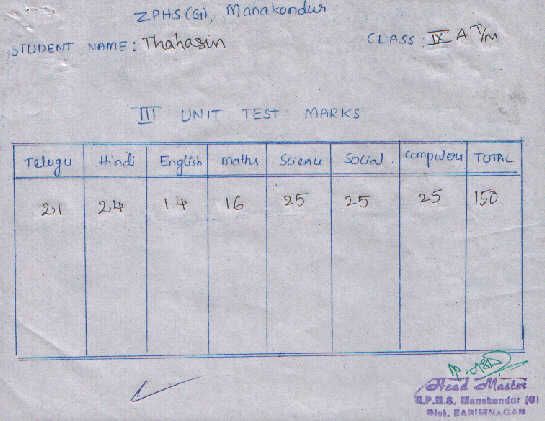 ZPHS(G), Manakondur
STUDENT NAME: Thahasin CLASS: IX A T/m
III UNIT TEST MARKS
Telugu Hindi English maths Science Social. Computers TOTAL
21 24 14 16 25 25 25 150
Head Master
Z.P.H.S. Manakondur (G)
Dist. KARIMNAGAR